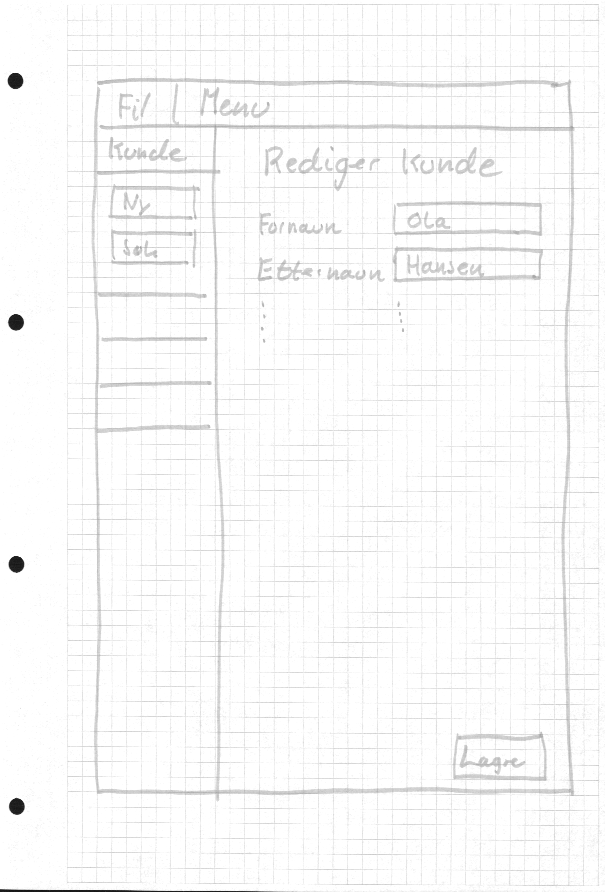 Fil Menu
Kunde
Ny
Søk
Rediger kunde
Fornavn Ola
Etternavn Hansen
Lagre